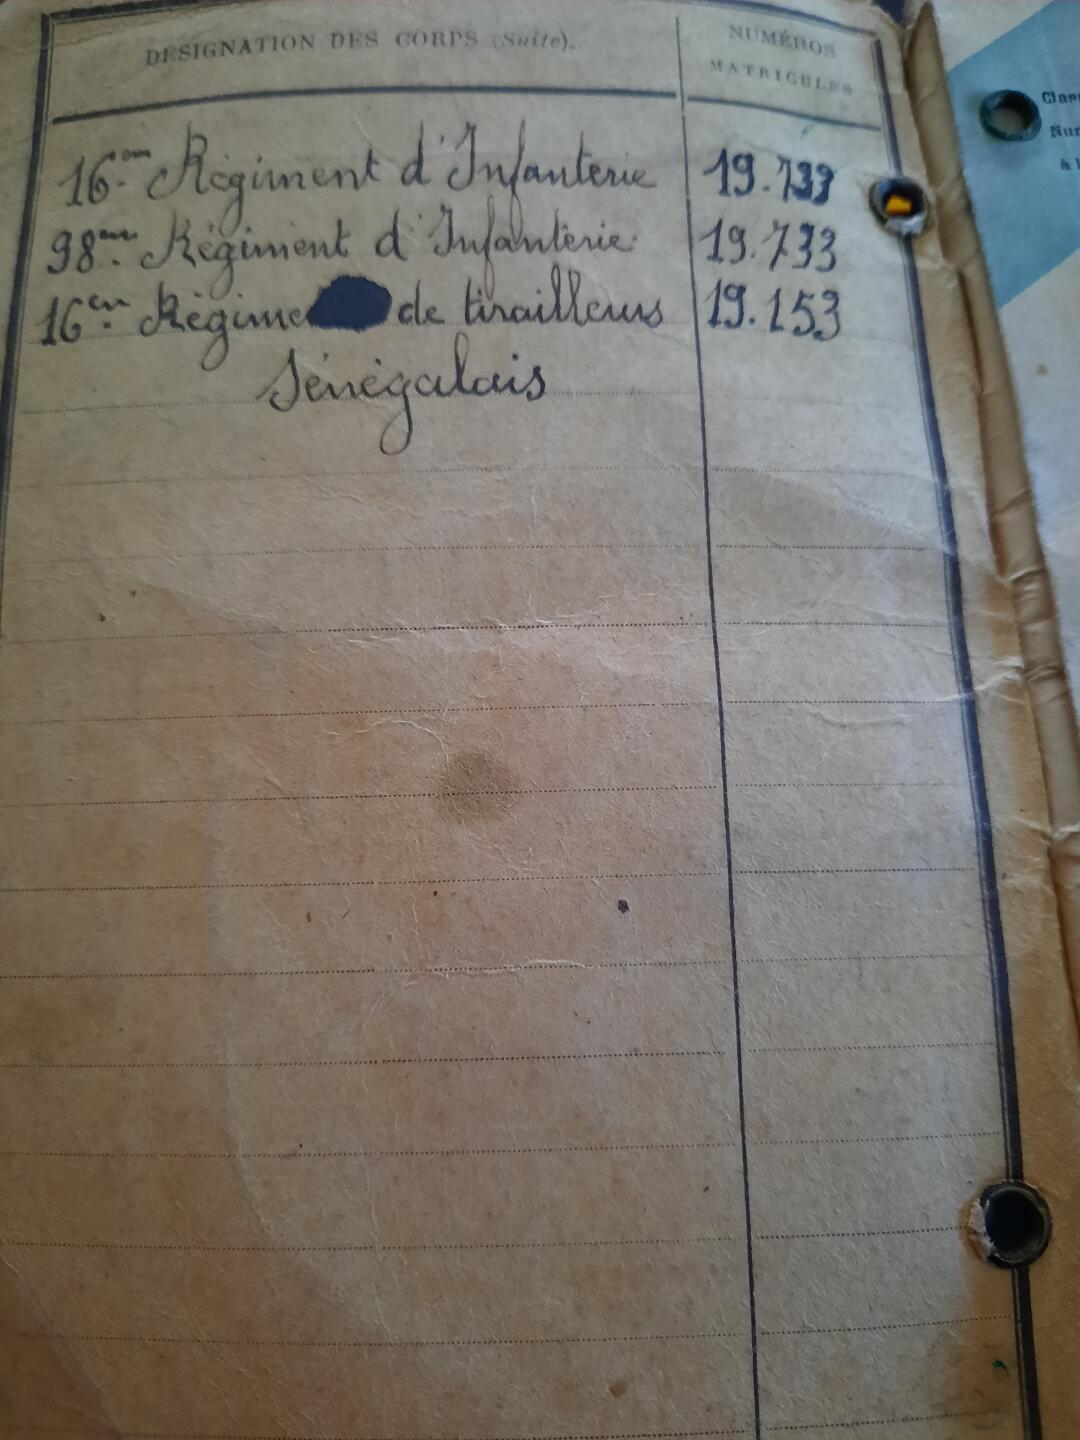 DÉSIGNATION DES CORPS (Suite).
NUMÉROS
MATRICULES
16ème Régiment d'Infanterie 19.733
98ème Régiment d'Infanterie 19.733
16em Régime de tirailleurs 19.153
Sénégalais
Clas
Nu
à l